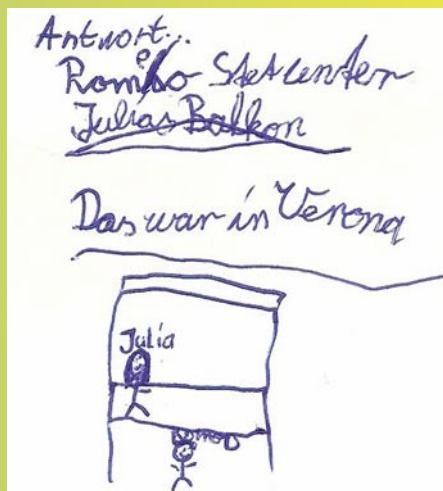 Antwort:.
Romeo Stet unter
Julias Balkon
Das war in Verona
Julia
Romeo